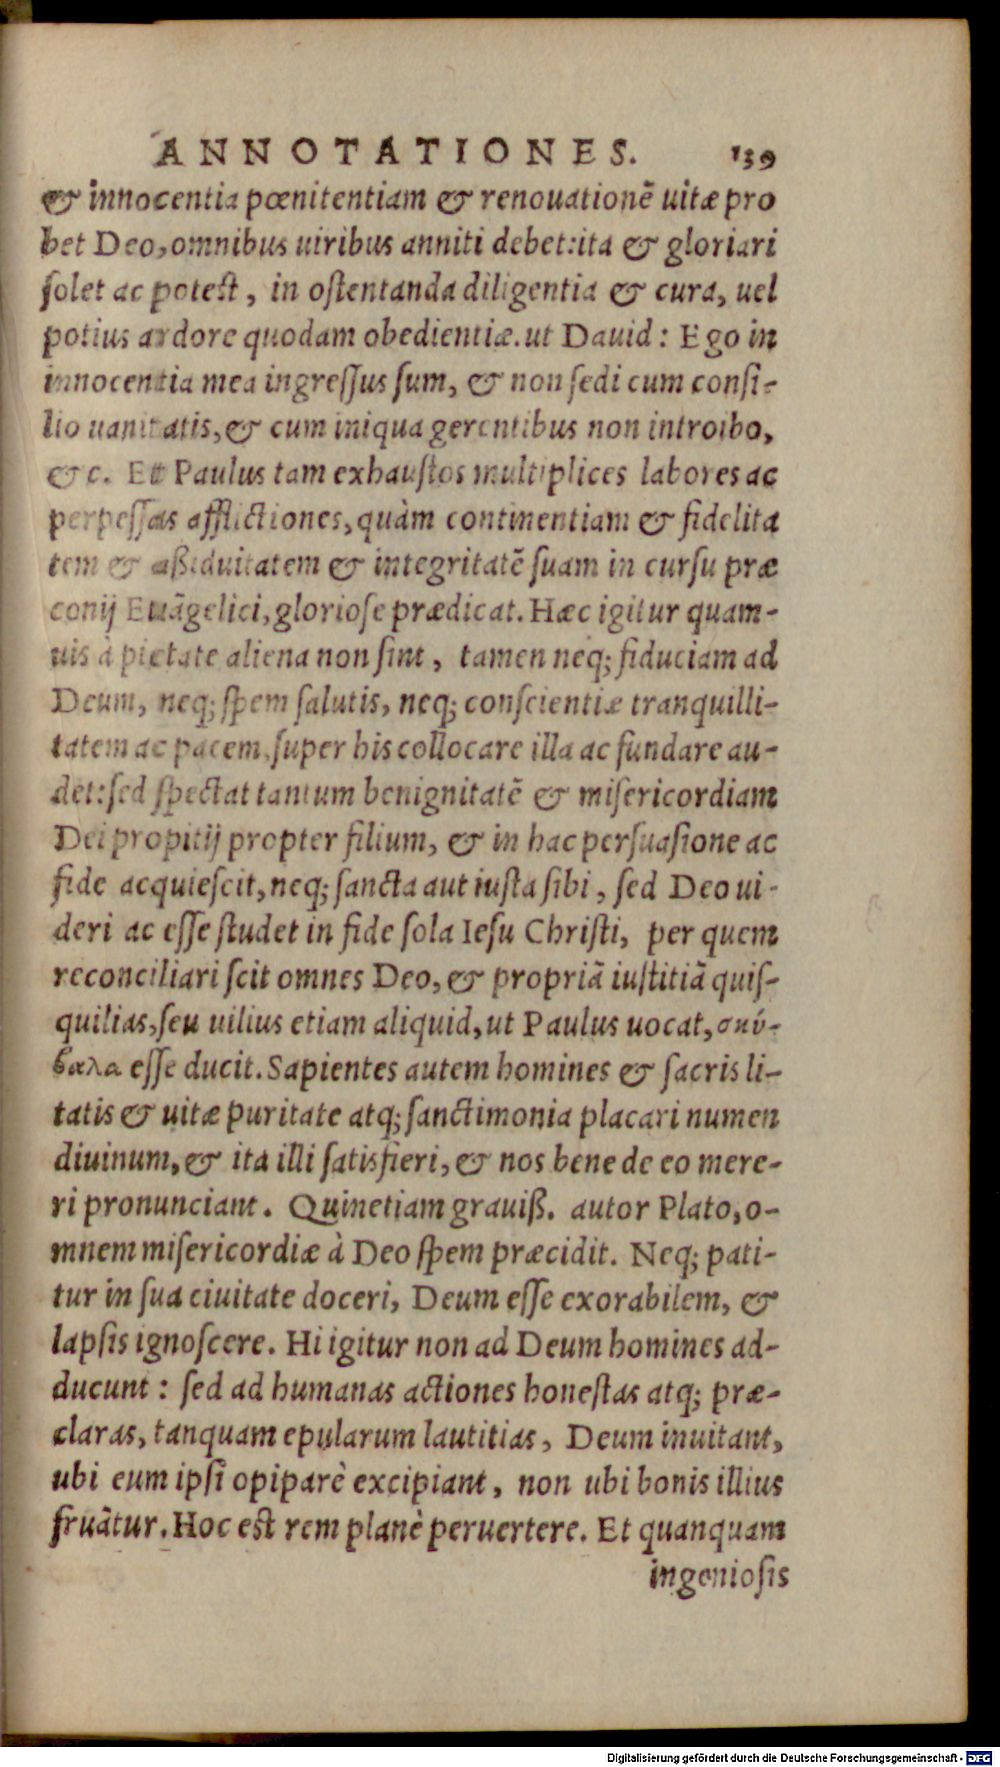 ANNOTATIONES. 139
& innocentia pœnitentiam & renouationẽ uitæ pro
bet Deo, omnibus uiribus anniti debet: ita & gloriari
ſolet ac poteſt, in oſtentanda diligentia & cura, uel
potius ardore quodam obedientiæ. ut Dauid: Ego in
innocentia mea ingreſſus ſum, & non ſedi cum conſi-
lio uanitatis, & cum iniqua gerentibus non introibo,
&c. Et Paulus tam exhauſtos multiplices labores ac
perpeſſas afflictiones, quàm continentiam & fidelita
tem & aßiduitatem & integritatẽ ſuam in curſu præ
conij Euãgelici, glorioſe prædicat. Hæc igitur quam-
uis à pietate aliena non ſint, tamen neq; fiduciam ad
Deum, neq; ſpem ſalutis, neq; conſcientiæ tranquilli-
tatem ac pacem, ſuper his collocare illa ac fundare au-
det: ſed ſpectat tantum benignitatẽ & miſericordiam
Dei propitij propter filium, & in hac perſuaſione ac
fide acquieſcit, neq; ſancta aut iuſta ſibi, ſed Deo ui-
deri ac eſſe ſtudet in fide ſola Ieſu Chriſti, per quem
reconciliari ſcit omnes Deo, & propriã iuſtitiã quiſ-
quilias, ſeu uilius etiam aliquid, ut Paulus uocat, σκύ-
βαλα eſſe ducit. Sapientes autem homines & ſacris li-
tatis & uitæ puritate atq; ſanctimonia placari numen
diuinum, & ita illi ſatisfieri, & nos bene de eo mere-
ri pronunciant. Quinetiam grauiß. autor Plato, o-
mnem miſericordiæ à Deo ſpem præcidit. Neq; pati-
tur in ſua ciuitate doceri, Deum eſſe exorabilem, &
lapſis ignoſcere. Hi igitur non ad Deum homines ad-
ducunt: ſed ad humanas actiones honeſtas atq; præ-
claras, tanquam epularum lautitias, Deum inuitant,
ubi eum ipſi opiparè excipiant, non ubi bonis illius
fruãtur. Hoc eſt rem planè peruertere. Et quanquam
ingenioſis
Digitalisierung gefördert durch die Deutsche Forschungsgemeinschaft - DFG